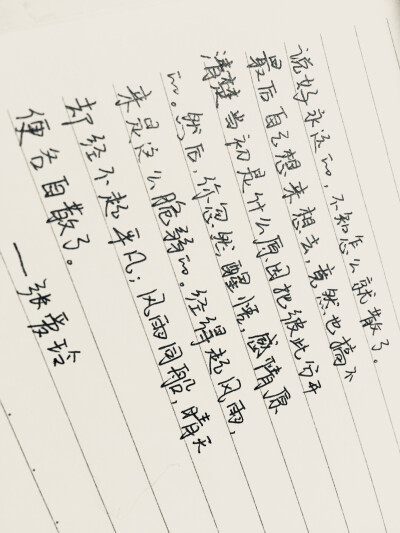 说好永远的，不知怎么就散了。
最后自己想来想去，竟然也搞不
清楚当初是什么原因把彼此分开
的。然后，你忽然醒悟，感情原
来是这么脆弱的。经得起风雨，
却经不起平凡；风雨同船，晴天
便各自散了。
——张爱玲